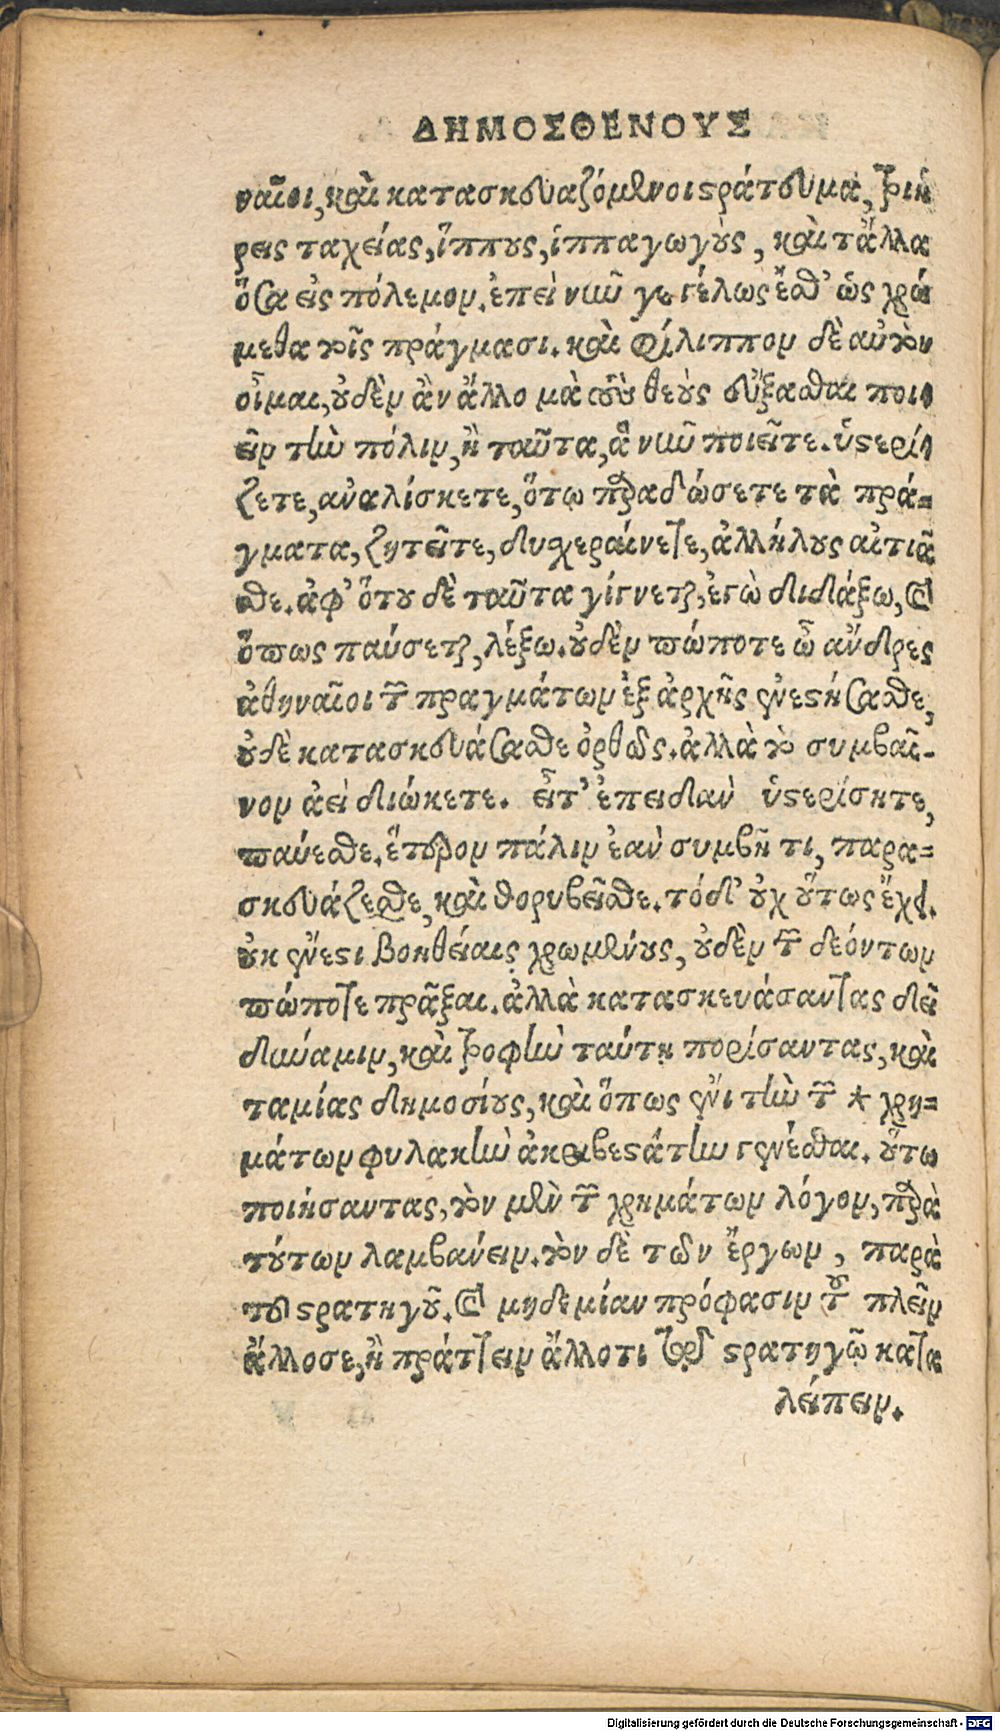 ΔΗΜΟΣΘΕΝΟΥΣ
ναῖοι, καὶ κατασκευαζόμενοι στράτευμα, τριή
ρεις ταχείας, ἵππους, ἱππαγωγοὺς, καὶ τἄλλα
ὅσα εἰς πόλεμον. ἐπεὶ νῦν γε γέλως ἔσθ' ὡς χρώ
μεθα τοῖς πράγμασι. καὶ φίλιππον δὲ αὐτὸν
οἶμαι, οὐδὲν ἂν ἄλλο μὰ τοὺς θεοὺς εὔξασθαι ποι
εῖν τὴν πόλιν, ἢ ταῦτα, ἃ νῦν ποιεῖτε. ὑστερί
ζετε, ἀναλίσκετε, ὅτῳ παραδώσετε τὰ πρά=
γματα, ζητεῖτε, δυσχεραίνετε, ἀλλήλους αἰτιᾶ
σθε. ἀφ' ὅτου δὲ ταῦτα γίγνεται, ἐγὼ διδάξω, καὶ
ὅπως παύσεται, λέξω. οὐδὲν πώποτε ὦ ἄνδρες
ἀθηναῖοι τῶν πραγμάτων ἐξ ἀρχῆς ἐνεστήσασθε,
οὐδὲ κατασκευάσασθε ὀρθῶς. ἀλλὰ τὸ συμβαῖ-
νον ἀεὶ διώκετε. εἶτ' ἐπειδὰν ὑστερίσητε,
παύεσθε. ἕτερον πάλιν ἐὰν συμβῇ τι, παρα=
σκευάζεσθε, καὶ θορυβεῖσθε. τόδ' οὐχ οὕτως ἔχει.
οὐκ ἔνεστι βοηθείαις χρωμένους, οὐδὲν τῶν δεόντων
πώποτε πρᾶξαι. ἀλλὰ κατασκευάσαντας δεῖ
δύναμιν, καὶ τροφὴν ταύτῃ πορίσαντας, καὶ
ταμίας δημοσίους, καὶ ὅπως ἔνι τὴν τῶν * χρη=
μάτων φυλακὴν ἀκριβεστάτην γενέσθαι. οὕτω
ποιήσαντας, τὸν μὲν τῶν χρημάτων λόγον, παρὰ
τούτων λαμβάνειν. τὸν δὲ τῶν ἔργων, παρὰ
τοῦ στρατηγοῦ. καὶ μηδεμίαν πρόφασιν τοῦ πλεῖν
ἄλλοσε, ἢ πράττειν ἄλλο τι τῷ στρατηγῷ κατα
λείπειν.
Digitalisierung gefördert durch die Deutsche Forschungsgemeinschaft - DFG